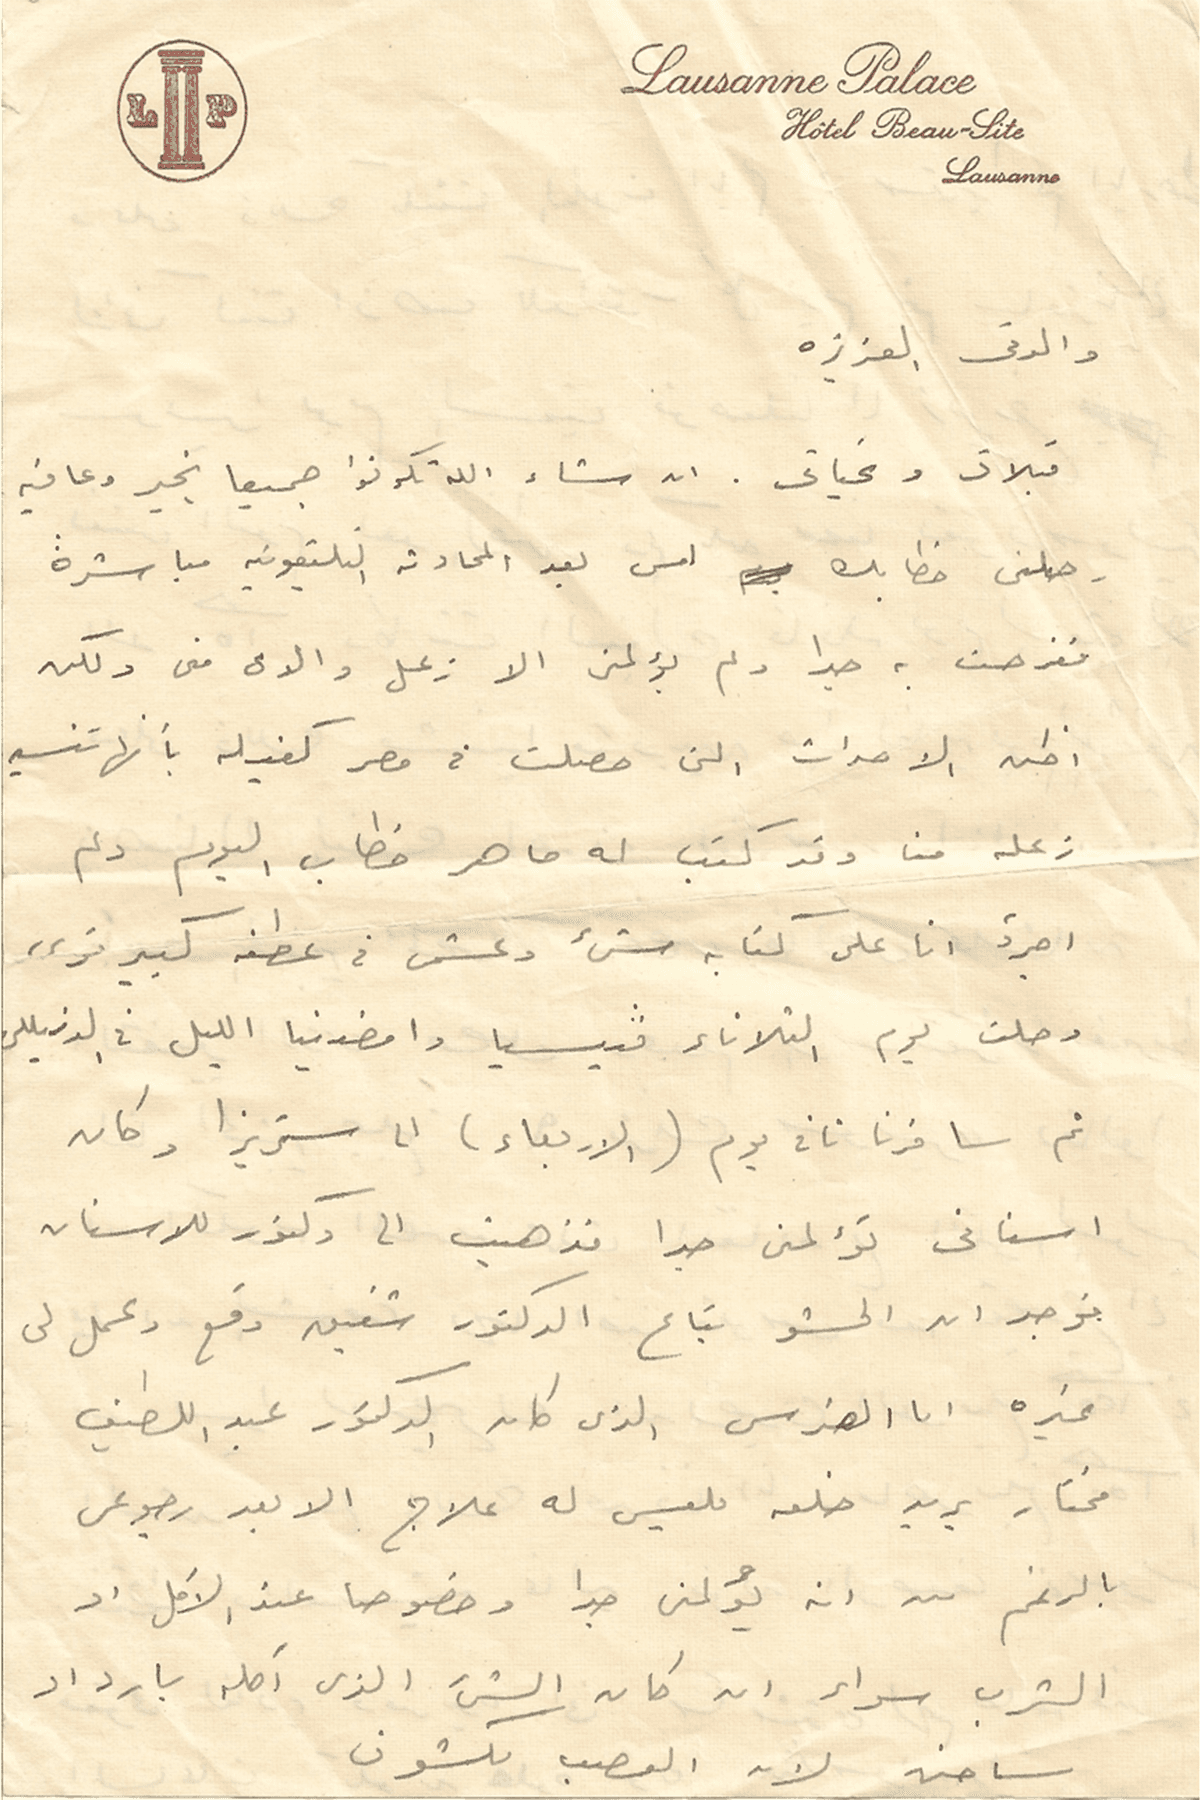 L P
Lausanne Palace
Hôtel Beau-Site
Lausanne
والدتى العزيزه
قبلاتى وتحياتى . ان شاء الله تكونوا جميعا بخير وعافيه
وصلنى خطابك امس بعد المحادثه التليفونيه مباشرة
ففرحت به جدا ولم يؤلمنى الا زعل والدى منى ولكن
اظن الاحداث التى حصلت فى مصر كفيله بأنها تنسيه
زعله منا وقد كتب له ماهر خطاب اليوم ولم
اجرؤ انا على كتابه شئ وعشمى فى عطفه كبير قوى
وصلت يوم الثلاثاء ڤنيسيا وامضينا الليل فى
ثم سافرنا تانى يوم (الاربعاء) الى ستريزا وكان
اسنانى تؤلمنى جدا فذهبت الى دكتور للاسنان
فوجد ان الحشو بتاع الدكتور شفيق وقع وعمل لى
غيره اما الضرس الذى كان الدكتور عبد اللطيف
مختار يريد خلعه فليس له علاج الا بعد رجوعى
بالرغم من انه يؤلمنى جدا وخصوصا عند الأكل او
الشرب سواء ان كان الشئ الذى آكله بارد او
ساخن لان العصب مكشوف